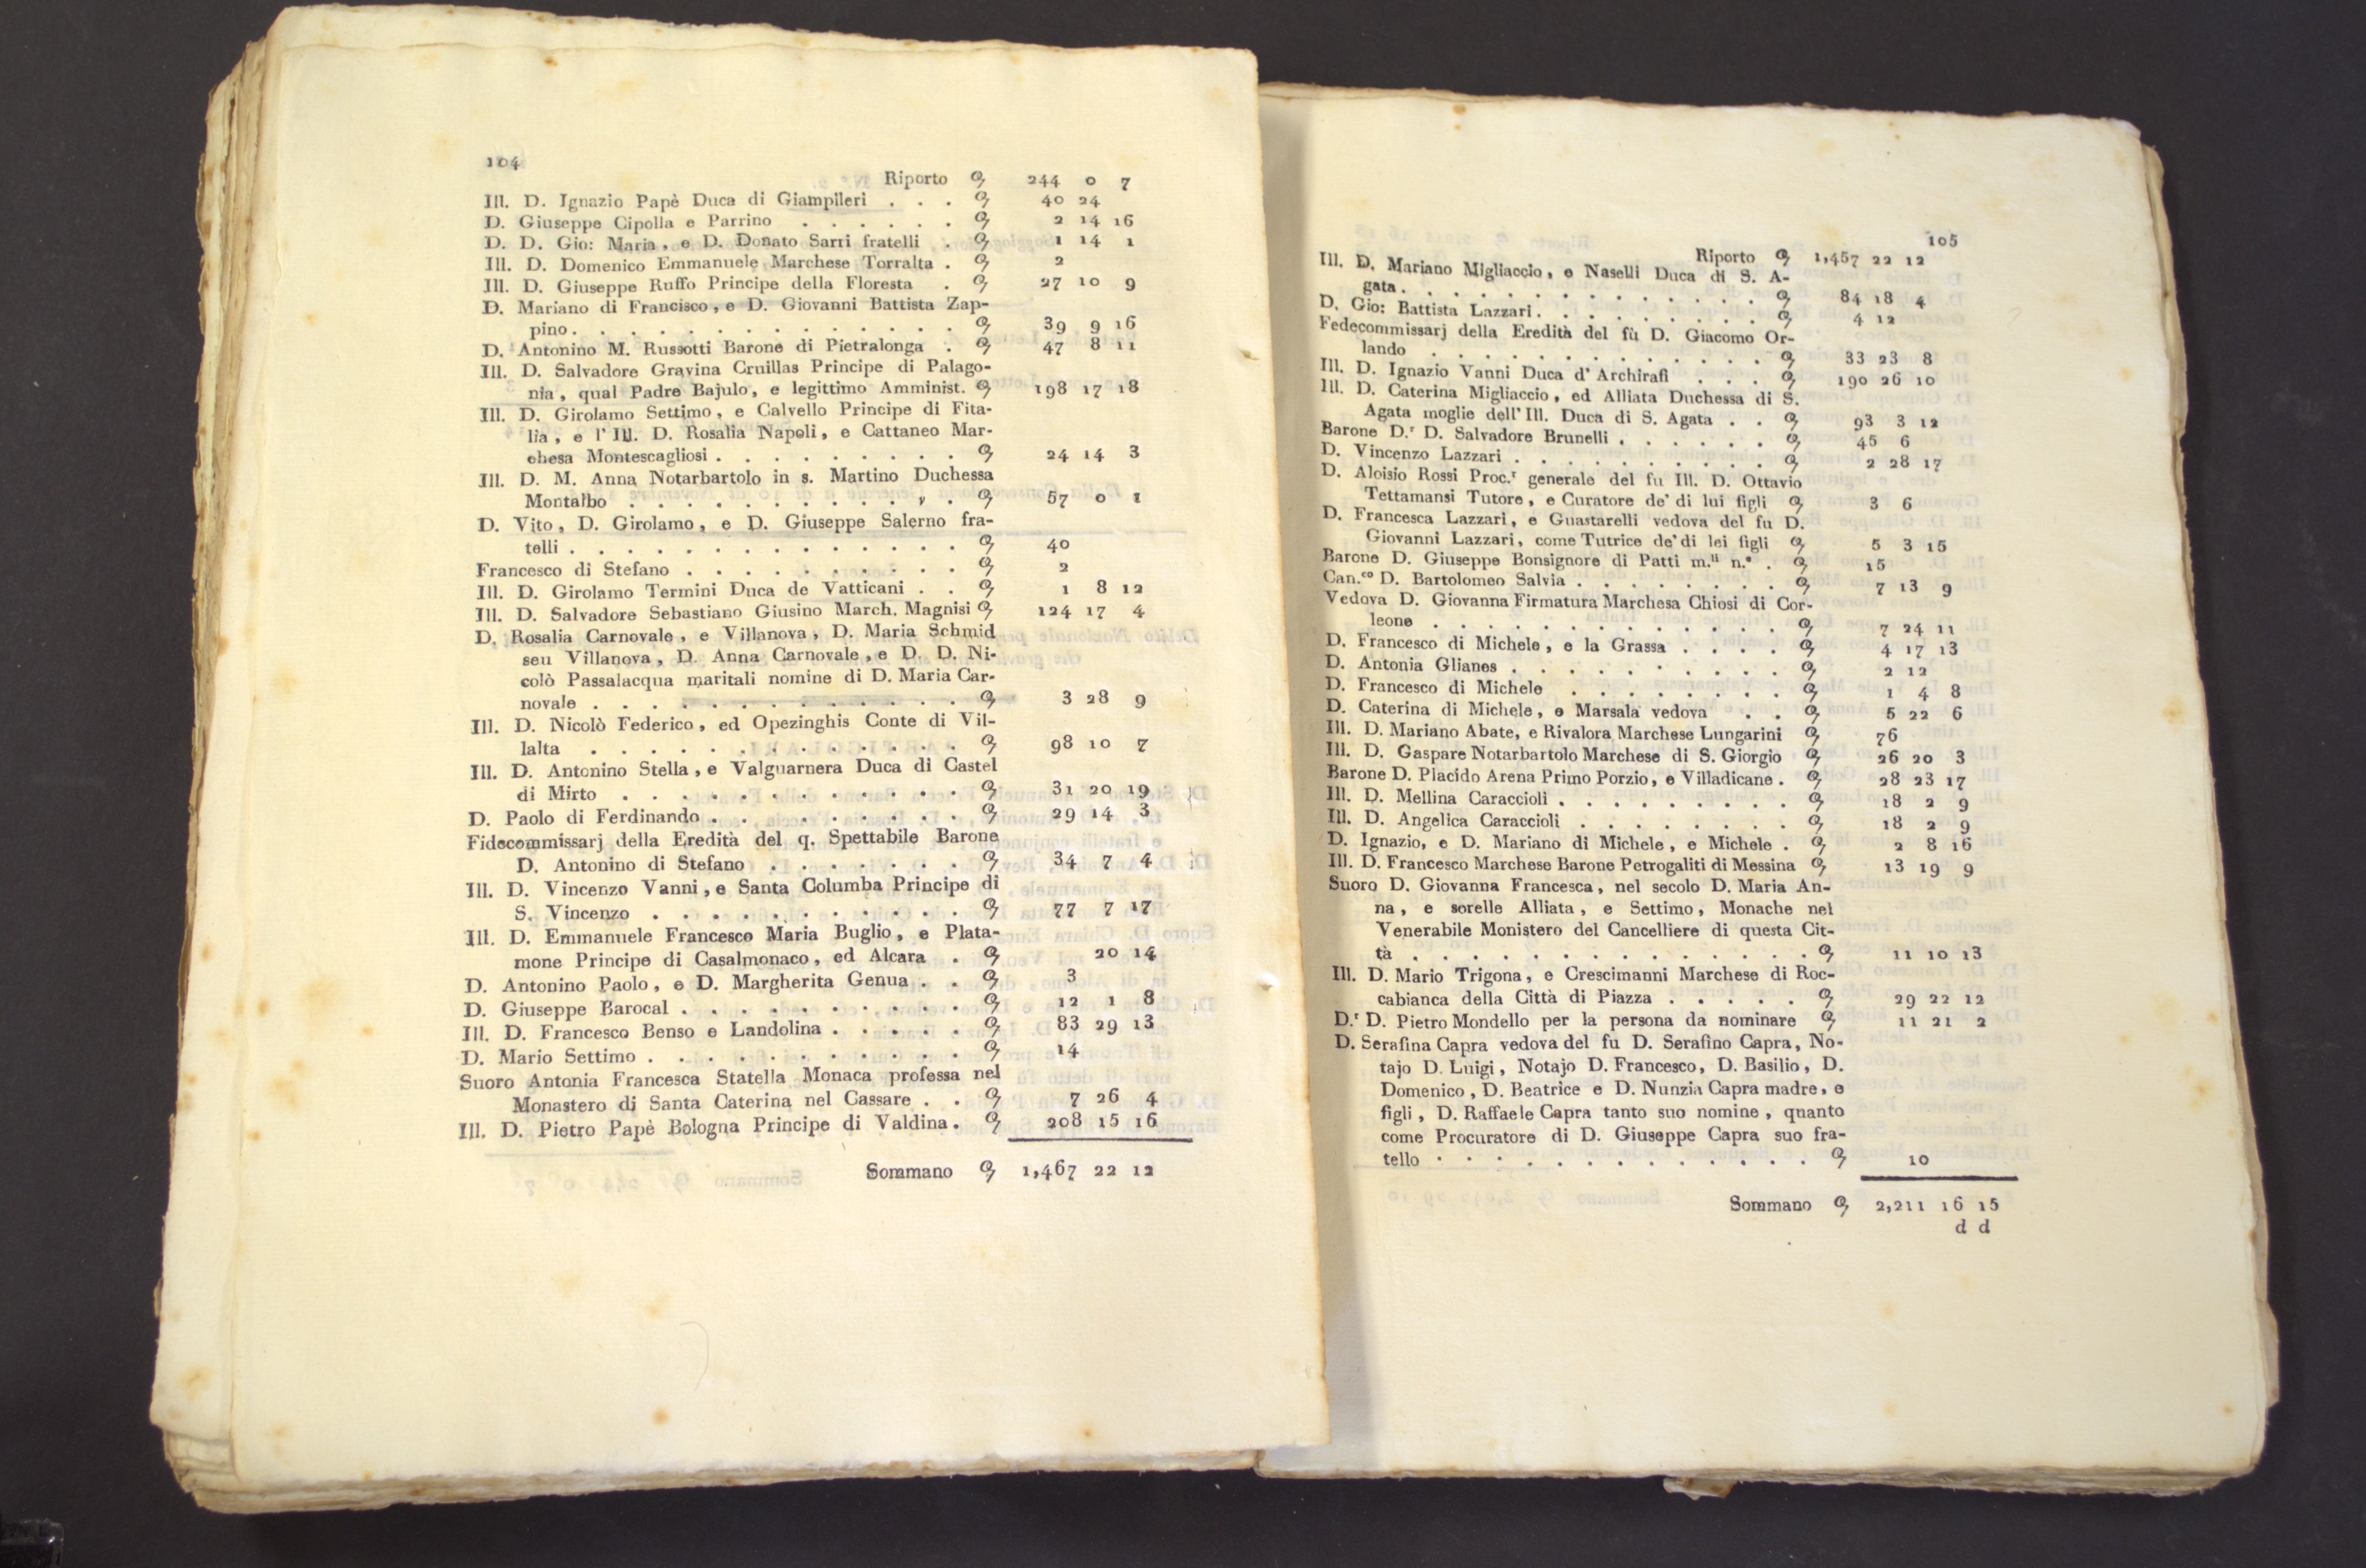 104
Riporto 244 0 7
Ill. D. Ignazio Papè Duca di Giampileri . . . 40 24
D. Giuseppe Cipolla e Parrino . . . . . . 2 14 16
D. D. Gio: Maria, e D. Donato Sarri fratelli . 1 14 1
Ill. D. Domenico Emmanuele Marchese Torralta . 2
Ill. D. Giuseppe Ruffo Principe della Floresta . 27 10 9
D. Mariano di Francisco, e D. Giovanni Battista Zap-
pino. . . . . . . . . . . . . . 39 9 16
D. Antonino M. Russotti Barone di Pietralonga . 47 8 11
Ill. D. Salvadore Gravina Cruillas Principe di Palago-
nia, qual Padre Bajulo, e legittimo Amminist. 198 17 18
Ill. D. Girolamo Settimo, e Calvello Principe di Fita-
lia, e l' Ill. D. Rosalia Napoli, e Cattaneo Mar-
chesa Montescagliosi . . . . . . . . . 24 14 3
Ill. D. M. Anna Notarbartolo in s. Martino Duchessa
Montalbo . . . . . . . . . . . . 57 0 1
D. Vito, D. Girolamo, e D. Giuseppe Salerno fra-
telli . . . . . . . . . . . . . . 40
Francesco di Stefano . . . . . . . . . . 2
Ill. D. Girolamo Termini Duca de Vatticani . . 1 8 12
Ill. D. Salvadore Sebastiano Giusino March. Magnisi 124 17 4
D. Rosalia Carnovale, e Villanova, D. Maria Schmid
seu Villanova, D. Anna Carnovale, e D. D. Ni-
colò Passalacqua maritali nomine di D. Maria Car-
novale . . . . . . . . . . . . . 3 28 9
Ill. D. Nicolò Federico, ed Opezinghis Conte di Vil-
lalta . . . . . . . . . . . . . 98 10 7
Ill. D. Antonino Stella, e Valguarnera Duca di Castel
di Mirto . . . . . . . . . . . . 31 20 19
D. Paolo di Ferdinando . . . . . . . . . 29 14 3
Fidecommissarj della Eredità del q. Spettabile Barone
D. Antonino di Stefano . . . . . . . 34 7 4
Ill. D. Vincenzo Vanni, e Santa Columba Principe di
S. Vincenzo . . . . . . . . . . . 77 7 17
Ill. D. Emmanuele Francesco Maria Buglio, e Plata-
mone Principe di Casalmonaco, ed Alcara . 20 14
D. Antonino Paolo, e D. Margherita Genua . . 3
D. Giuseppe Barocal . . . . . . . . . . 12 1 8
Ill. D. Francesco Benso e Landolina . . . . . 83 29 13
D. Mario Settimo . . . . . . . . . . . 14
Suoro Antonia Francesca Statella Monaca professa nel
Monastero di Santa Caterina nel Cassare . . 7 26 4
Ill. D. Pietro Papè Bologna Principe di Valdina . 208 15 16
Sommano 1,467 22 12
105
Riporto 1,457 22 12
Ill. D. Mariano Migliaccio, e Naselli Duca di S. A-
gata . . . . . . . . . . . . . . 84 18 4
D. Gio: Battista Lazzari . . . . . . . . . 4 12
Fedecommissarj della Eredità del fù D. Giacomo Or-
lando . . . . . . . . . . . . . 33 23 8
Ill. D. Ignazio Vanni Duca d' Archirafi . . . . 190 26 10
Ill. D. Caterina Migliaccio, ed Alliata Duchessa di S.
Agata moglie dell' Ill. Duca di S. Agata . . 93 3 12
Barone D.r D. Salvadore Brunelli . . . . . . 45 6
D. Vincenzo Lazzari . . . . . . . . . . 2 28 17
D. Aloisio Rossi Proc.r generale del fu Ill. D. Ottavio
Tettamansi Tutore, e Curatore de' di lui figli 3 6
D. Francesca Lazzari, e Guastarelli vedova del fu D.
Giovanni Lazzari, come Tutrice de' di lei figli 5 3 15
Barone D. Giuseppe Bonsignore di Patti m.li n.e . 15
Can.co D. Bartolomeo Salvia . . . . . . . . 7 13 9
Vedova D. Giovanna Firmatura Marchesa Chiosi di Cor-
leone . . . . . . . . . . . . . 7 24 11
D. Francesco di Michele, e la Grassa . . . . 4 17 13
D. Antonia Glianes . . . . . . . . . . 2 12
D. Francesco di Michele . . . . . . . . 1 4 8
D. Caterina di Michele, e Marsala vedova . . 5 22 6
Ill. D. Mariano Abate, e Rivalora Marchese Lungarini 76
Ill. D. Gaspare Notarbartolo Marchese di S. Giorgio 26 20 3
Barone D. Placido Arena Primo Porzio, e Villadicane . 28 23 17
Ill. D. Mellina Caraccioli . . . . . . . . . 18 2 9
Ill. D. Angelica Caraccioli . . . . . . . . 18 2 9
D. Ignazio, e D. Mariano di Michele, e Michele . 2 8 16
Ill. D. Francesco Marchese Barone Petrogaliti di Messina 13 19 9
Suoro D. Giovanna Francesca, nel secolo D. Maria An-
na, e sorelle Alliata, e Settimo, Monache nel
Venerabile Monistero del Cancelliere di questa Cit-
tà . . . . . . . . . . . . . . 11 10 13
Ill. D. Mario Trigona, e Crescimanni Marchese di Roc-
cabianca della Città di Piazza . . . . . 29 22 12
D.r D. Pietro Mondello per la persona da nominare 11 21 2
D. Serafina Capra vedova del fu D. Serafino Capra, No-
tajo D. Luigi, Notajo D. Francesco, D. Basilio, D.
Domenico, D. Beatrice e D. Nunzia Capra madre, e
figli, D. Raffaele Capra tanto suo nomine, quanto
come Procuratore di D. Giuseppe Capra suo fra-
tello . . . . . . . . . . . . . 10
Sommano 2,211 16 15
d d